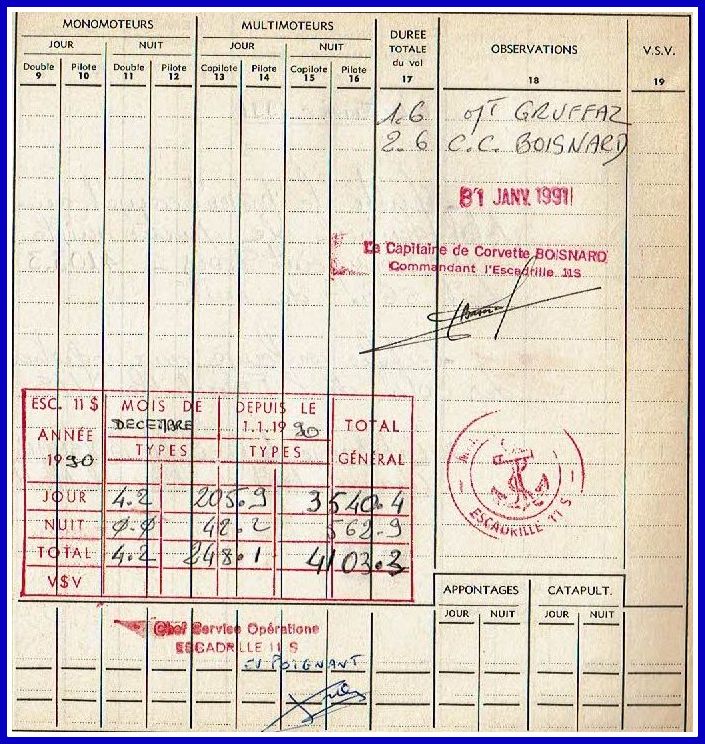 MONOMOTEURS MULTIMOTEURS DUREE TOTALE du vol OBSERVATIONS V.S.V.
JOUR NUIT JOUR NUIT
Double 9 Pilote 10 Double 11 Pilote 12 Copilote 13 Pilote 14 Copilote 15 Pilote 16 17 18 19
1.6 MT GRUFFAZ
2.6 C.C. BOISNARD
31 JANV. 1991
Le Capitaine de Corvette BOISNARD
Commandant l'Escadrille 11S
ESC. 11 S MOIS DE DEPUIS LE TOTAL GÉNÉRAL
ANNÉE DECEMBRE 1.1.19 90
1990 TYPES TYPES
JOUR 4.2 205.9 3540.4
NUIT 0.0 42.2 562.9
TOTAL 4.2 248.1 4103.3
V$V
ESCADRILLE 11 S
APPONTAGES CATAPULT.
JOUR NUIT JOUR NUIT
Chef Service Opérations
ESCADRILLE 11 S
EV POIGNANT